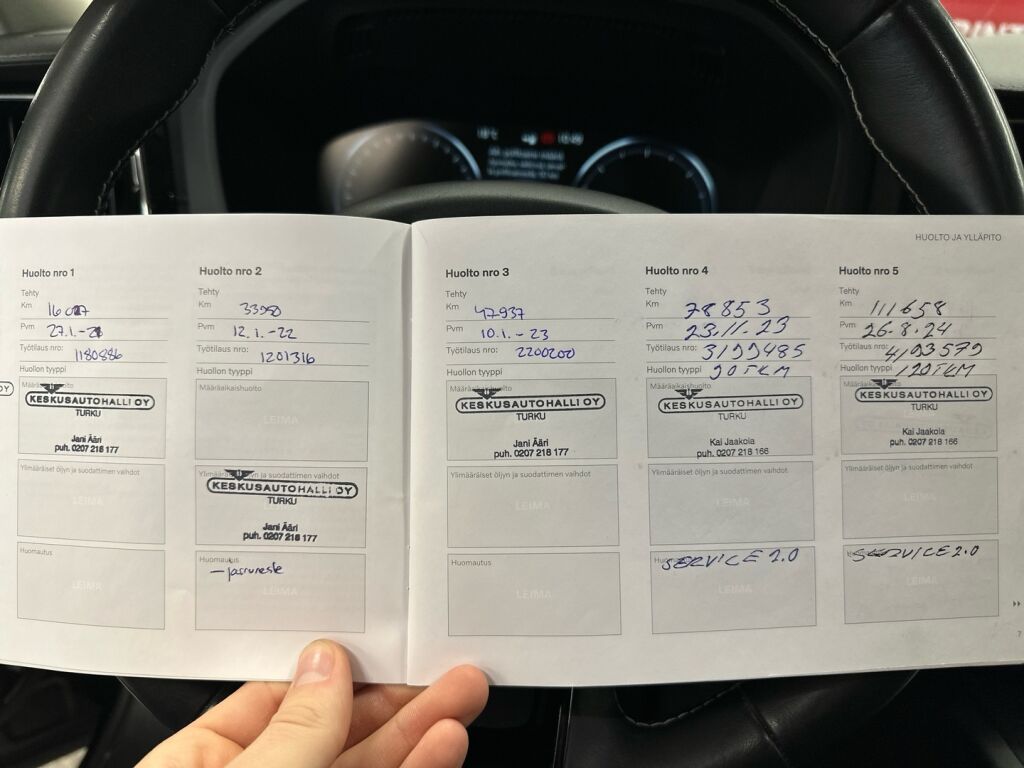 HUOLTO JA YLLÄPITO
Huolto nro 1
Tehty
Km
Pvm 27.1.-21
Työtilaus nro: 1180886
Huollon tyyppi
Määräaikaishuolto
KESKUSAUTOHALLI OY
TURKU
Jani Ääri
puh. 0207 218 177
LEIMA
Huomautus
LEIMA
Huolto nro 2
Tehty
Km
Pvm 12.1.-22
Työtilaus nro: 1201316
Huollon tyyppi
Määräaikaishuolto
LEIMA
Ylimääräiset öljyn ja suodattimen vaihdot
KESKUSAUTOHALLI OY
TURKU
Jani Ääri
puh. 0207 218 177
Huomautus
– jarruneste
LEIMA
Huolto nro 3
Tehty
Km 47937
Pvm 10.1.-23
Työtilaus nro: 2200200
Huollon tyyppi
KESKUSAUTOHALLI OY
TURKU
Jani Ääri
puh. 0207 218 177
Ylimääräiset öljyn ja suodattimen vaihdot
LEIMA
Huomautus
LEIMA
Huolto nro 4
Tehty
Km 78853
Pvm 23.11.23
Työtilaus nro: 3199485
Huollon tyyppi 90TKM
Määräaikaishuolto
KESKUSAUTOHALLI OY
TURKU
Kai Jaakola
puh. 0207 218 166
Ylimääräiset öljyn ja suodattimen vaihdot
LEIMA
SERVICE 2.0
LEIMA
Huolto nro 5
Tehty
Km 111658
Pvm 26.8.24
Työtilaus nro: 4193579
Huollon tyyppi 120TKM
KESKUSAUTOHALLI OY
TURKU
Kai Jaakola
puh. 0207 218 166
Ylimääräiset öljyn ja suodattimen vaihdot
LEIMA
SERVICE 2.0
LEIMA
7